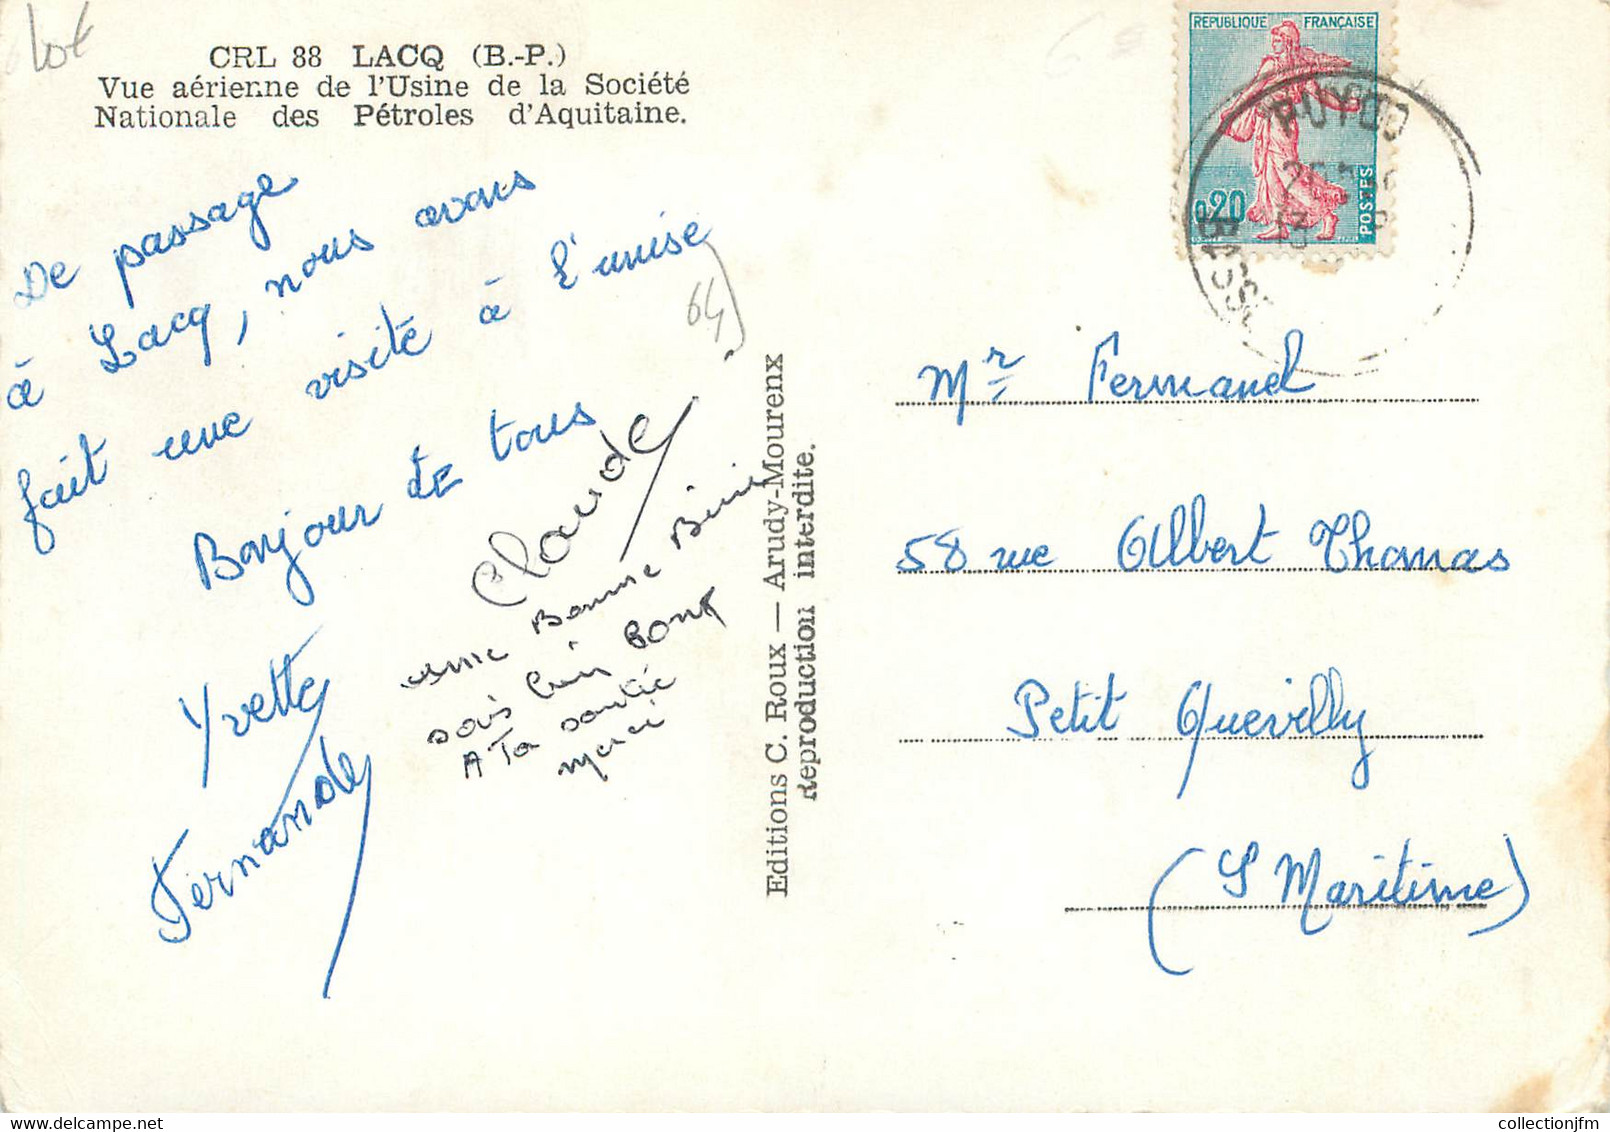 lot
CRL 88 LACQ (B.-P.)
Vue aérienne de l'Usine de la Société
Nationale des Pétroles d'Aquitaine.
De passage
à Lacq, nous avons
fait une visite à l'unise
Bonjour de tous
Yvette
Fernande
Claude
une Bonne Bière
sois bien bonne
A Ta santé
merci
64
Editions C. Roux — Arudy-Mourenx
Reproduction interdite.
REPUBLIQUE FRANÇAISE
0,20
POSTES
PUYOO
Mr Fernand
58 rue Albert Thomas
Petit Quevilly
(S Maritime)
collectionjfm